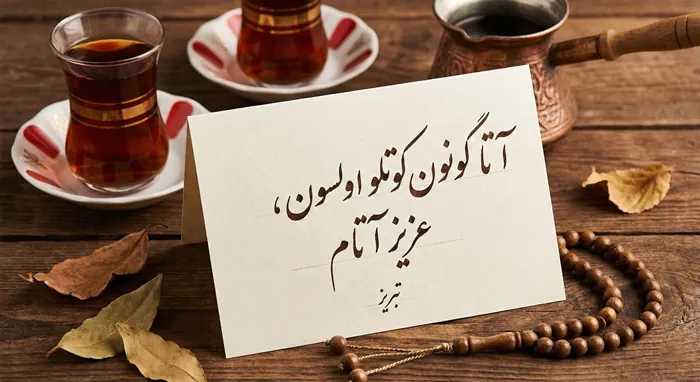 آتا گونون کوتلو اولسون،
عزیز آتام
تبریز